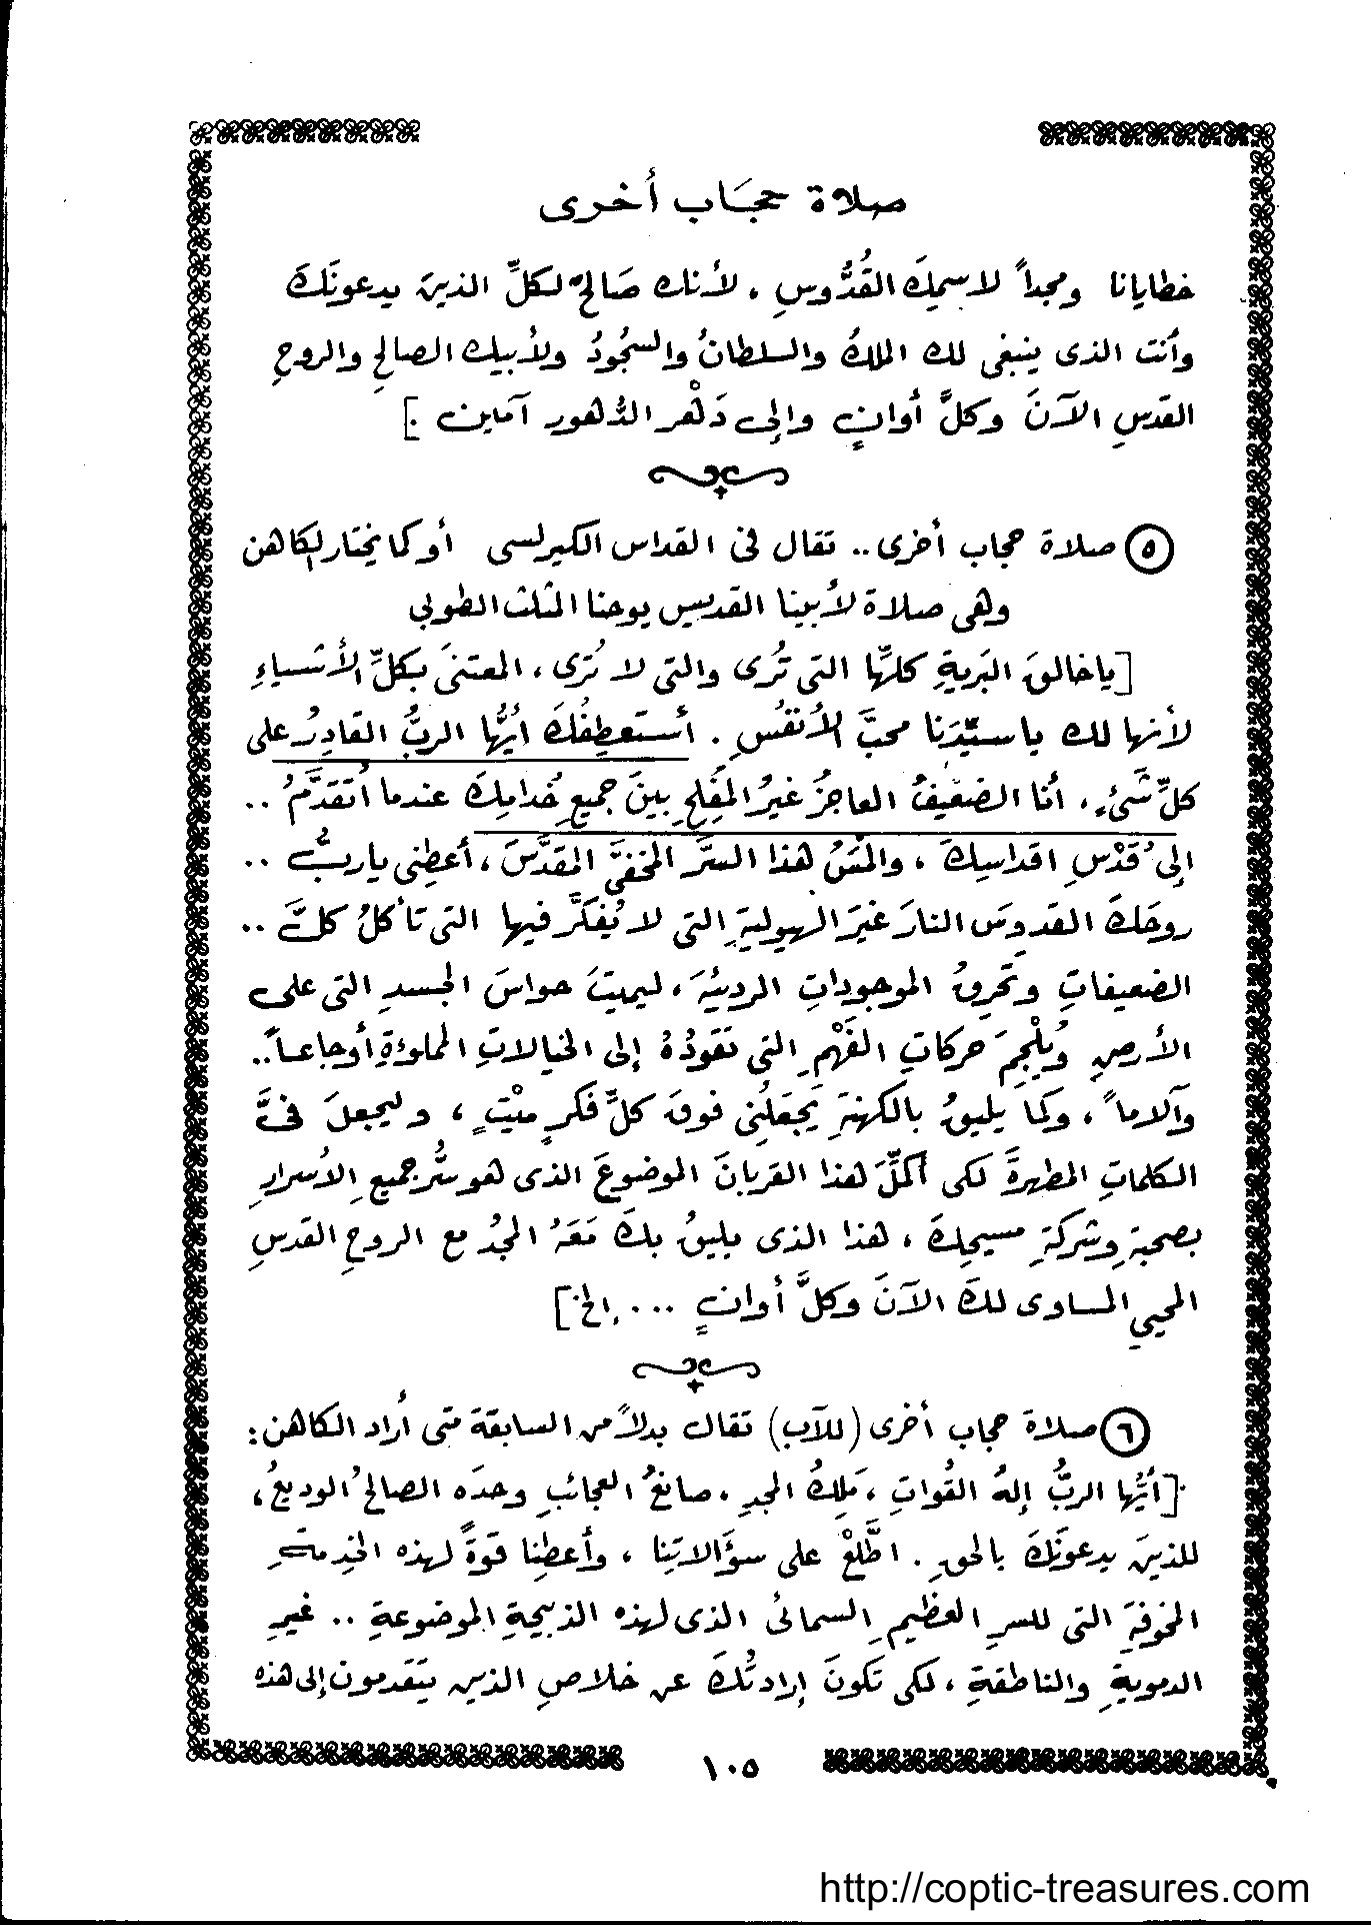 صلاة حجَاب أُخرى
خطايانا ومجداً لاسمِكَ القُدُّوسِ ، لأنك صَالحٌ لكلِّ الذينَ يدعونَكَ
وأنت الذى ينبغى لك الملكُ والسلطانُ والسجُودُ ولأبيك الصالحِ والروحِ
القدسِ الآنَ وكلَّ أوانٍ وإلى دَهْر الدُّهور آمين .]
٥ صلاة حجاب أخرى .. تقال فى القداس الكيرلسى أو كما يختار الكاهن
وهى صلاة لأبينا القديس يوحنا المثلث الطوبى
[ياخالقَ البَريةِ كلِّها التى تُرى والتى لا تُرى ، المعتنىَ بكلِّ الأشياءِ
لأنها لك ياسيِّدَنا محبَّ الأنفُسِ . أستَعطِفُكَ أيُّها الربُّ القادِرُ على
كلِّ شَىْءٍ ، أنا الضعيفُ العاجزُ غيرُ المُفِلحِ بينَ جميعِ خُدامِكَ عندما أتقدَّمُ ..
إلى قُدْسِ اقداسِكَ ، والمَسُ هذا السرَّ المخفىَّ المقدَّسَ ، أعطِنى ياربُّ ..
روحَكَ القدوسَ النارَ غيَر الهيوليةِ التى لا يُفكَّر فيها التى تأكلُ كلَّ ..
الضعيفاتِ وتَحرِقُ الموجوداتِ الرديئةَ ، ليميتَ حواسَ الجسدِ التى على
الأرضِ ويُلْجِمَ حركاتِ الفَهْمِ التى تقودُهُ إلى الخيالاتِ المملوءةِ أوجاعاً ..
وآلاماً ، وكما يليقُ بالكهنةِ يَجعَلُنِى فوقَ كلِّ فكرٍ ميْتٍ ، وليجعلَ فىَّ
الكلماتِ المطهرةَ لكى أكمِّلَ هذا القربانَ الموضوعَ الذى هو سُّر جميعِ الأسرارِ
بصحبةِ وشركةِ مسيحِكَ ، هذا الذى يليقُ بكَ مَعَهُ المجدُ مع الروحِ القدسِ
المحيي المساوى لكَ الآنَ وكلَّ أوانٍ .... إلخ]
٦ صلاة حجاب أخرى (للآب) تقال بدلاً من السابقة متى أراد الكاهن :
[أيُّها الربُّ إلهُ القُواتِ ، مَلِكُ المجدِ ، صانعُ العجائبِ وحدَه الصالحُ الوديعُ ،
للذينَ يدعونَكَ بالحقِ . اطَّلعْ على سؤَالاتِنا ، وأعطِنا قوةً لهذه الخدمةِ
المخوفةَ التى للسرِ العظيمِ السمائىُ الذى لهذه الذبيحةِ الموضوعةِ .. غيرِ
الدمويةِ والناطقةِ ، لكى تكونَ إرادتُكَ عن خلاصِ الذين يتقدمون إلى هذه
١٠٥
http://coptic-treasures.com